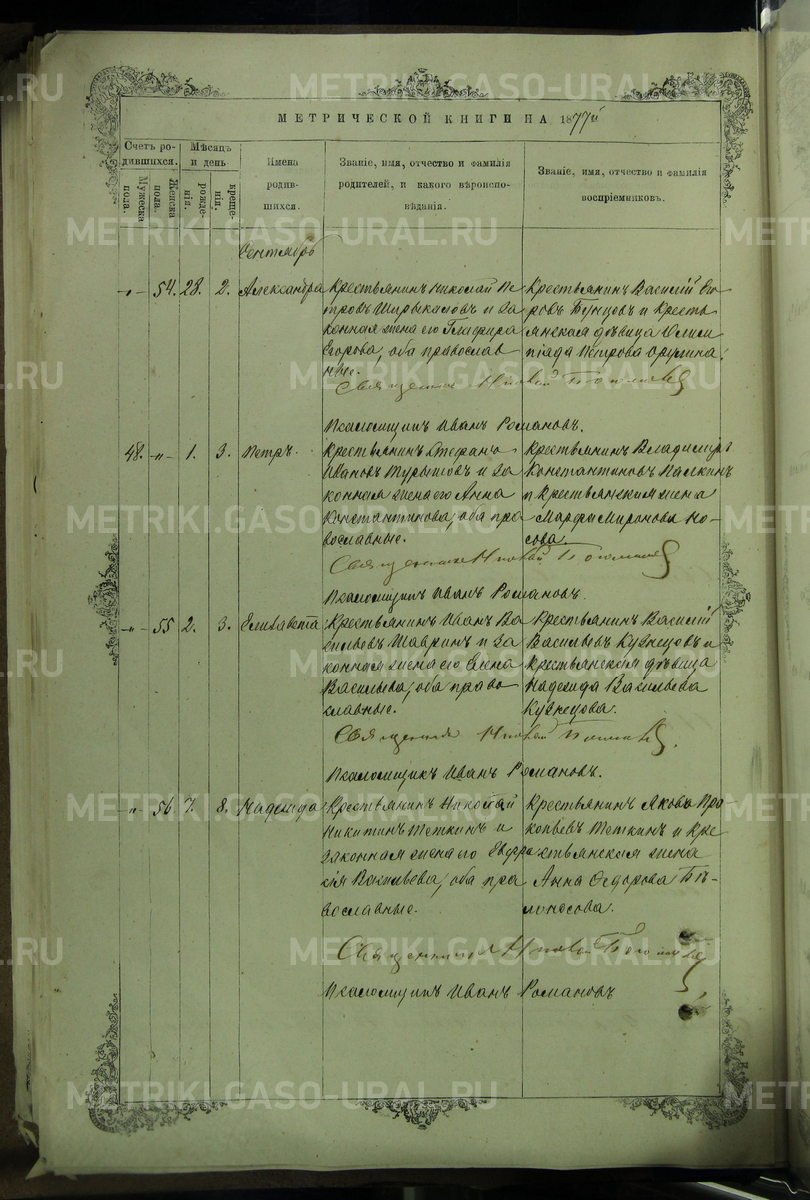 МЕТРИЧЕСКОЙ КНИГИ НА 1877й
Счетъ ро-
дившихся.
Мѣсяцъ
и день
Мужеска
пола.
Женска
пола.
рожде-
нія.
креще-
нія.
Имена
родив-
шихся.
Званіе, имя, отчество и фамилія
родителей, и какого вѣроиспо-
вѣданія.
Званіе, имя, отчество и фамилія
воспріемниковъ.
Сентябрь
-„- 54. 28. 2. Александра
Крестьянинъ Николай Пе
тровъ и за
конная жена его Глафира
Егорова, оба православ
ные.
Крестьянинъ Василій
и Кресть
янская дѣвица Олим
піада Петрова
Священникъ
Псаломщикъ Иванъ Романовъ.
48. -„- 1. 3. Петръ.
Крестьянинъ Стефанъ
Ивановъ и за
конная жена его Анна
Константинова, оба пра
вославные.
Крестьянинъ Владиміръ
Константиновъ Палкинъ
и Крестьянская жена
Марфа Миронова Но-
сова.
Священникъ
Псаломщикъ Иванъ Романовъ.
-„- 55 2. 3. Елизавета
Крестьянинъ Иванъ Ва
сильевъ Шавринъ и за
конная жена его Елена
Васильева, оба право
славные.
Крестьянинъ Василій
Васильевъ Кузнецовъ и
Крестьянская дѣвица
Надежда Васильева
Кузнецова.
Священникъ
Псаломщикъ Иванъ Романовъ.
-„- 56. 7. 8. Надежда
Крестьянинъ Николай
Никитинъ Теткинъ и
законная жена его Евфра
сія Васильева, оба пра
вославные.
Крестьянинъ Яковъ Про
копьевъ Теткинъ и Кре
стьянская жена
Анна Ѳедорова Бѣ-
лоносова.
Священникъ
Псаломщикъ Иванъ Романовъ
METRIKI.GASO-URAL.RU